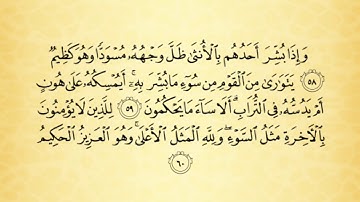 وَإِذَا بُشِّرَ أَحَدُهُم بِٱلْأُنثَىٰ ظَلَّ وَجْهُهُۥ مُسْوَدًّا وَهُوَ كَظِيمٌ
٥٨ يَتَوَٰرَىٰ مِنَ ٱلْقَوْمِ مِن سُوٓءِ مَا بُشِّرَ بِهِۦٓ ۚ أَيُمْسِكُهُۥ عَلَىٰ هُونٍ
أَمْ يَدُسُّهُۥ فِى ٱلتُّرَابِ ۗ أَلَا سَآءَ مَا يَحْكُمُونَ ٥٩ لِلَّذِينَ لَا يُؤْمِنُونَ
بِٱلْـَٔاخِرَةِ مَثَلُ ٱلسَّوْءِ ۖ وَلِلَّهِ ٱلْمَثَلُ ٱلْأَعْلَىٰ ۚ وَهُوَ ٱلْعَزِيزُ ٱلْحَكِيمُ
٦٠